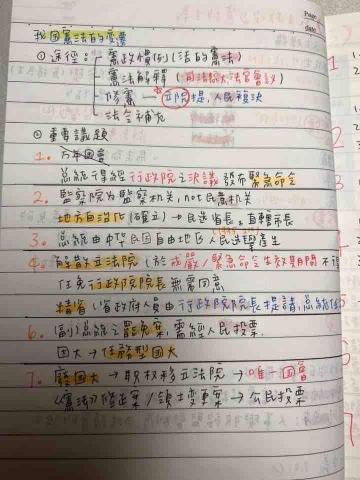 Page
date
我國憲法的變遷
①途徑：憲政慣例(活的憲法)
憲法解釋(司法院大法官會議)
修憲→立院提，人民複決
法令補充
②重要議題
1. 万年國會
總統得經行政院之決議發布緊急命令
2. 監察院為監察机关，not民意机关
地方自治化(確立)→民選省長、直轄市長
3. 總統由中華民国自由地区人民選舉產生
4. 解散立法院(於戒嚴/緊急命令生效期間不得
任免行政院院長無需同意
精省(省政府人員由行政院院長提請，總統任
6. (副)總統之罷免案需經人民投票
国大→任務型国大
7. 廢国大→職权移立法院→唯一国會
《憲法》修正案/領土變更案→公民投票